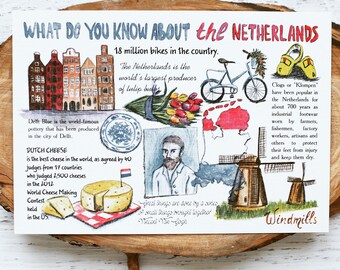 WHAT DO YOU KNOW ABOUT the NETHERLANDS
18 million bikes in the country.
The Netherlands is the
world's largest producer
of tulip bulbs
Clogs or "Klompen"
have been popular in
the Netherlands for
about 700 years as
industrial footwear
worn by farmers,
fishermen, factory
workers, artisans and
others to protect
their feet from injury
and keep them dry.
Delft Blue is the world-famous
pottery that has been produced
in the city of Delft.
DUTCH CHEESE
is the best cheese in the world, as agreed by 40
judges from 17 countries
who judged 2,500 cheeses
in the 2012
World Cheese Making
Contest
held
in the US
Great things are done by a series
of small things brought together
Vincent Van Gogh
Windmills